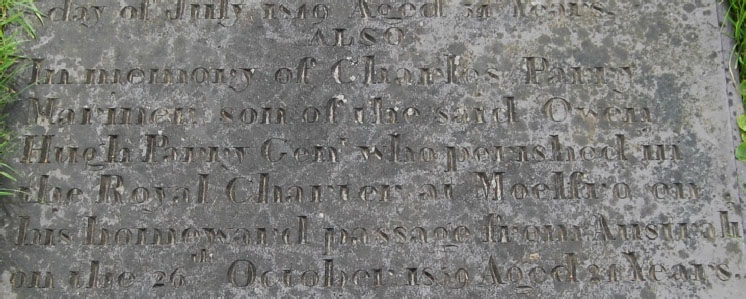 day of July 1819 Aged 54 Years.
ALSO
In memory of Charles Parry
Mariner, son of the said Owen
Hugh Parry Genr. who perished in
the Royal Charter at Moelfra on
his homeward passage from Australi
on the 26th October 1859 Aged 21 Years.